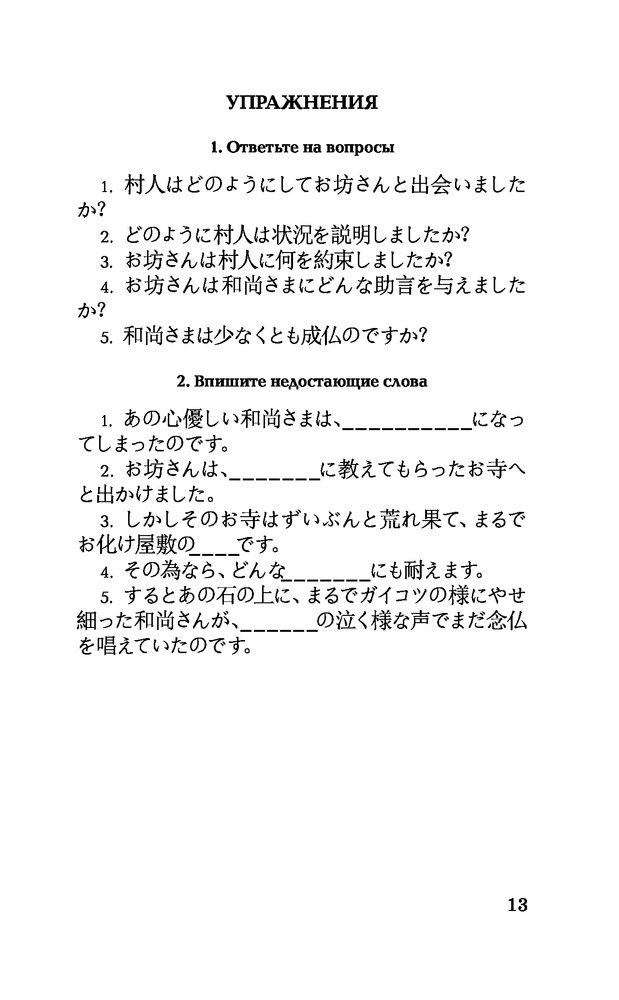 УПРАЖНЕНИЯ
1. Ответьте на вопросы
1. 村人はどのようにしてお坊さんと出会いました
か?
2. どのように村人は状況を説明しましたか?
3. お坊さんは村人に何を約束しましたか?
4. お坊さんは和尚さまにどんな助言を与えました
か?
5. 和尚さまは少なくとも成仏のですか?
2. Впишите недостающие слова
1. あの心優しい和尚さまは、__________になっ
てしまったのです。
2. お坊さんは、_______に教えてもらったお寺へ
と出かけました。
3. しかしそのお寺はずいぶんと荒れ果て、まるで
お化け屋敷の____です。
4. その為なら、どんな_______にも耐えます。
5. するとあの石の上に、まるでガイコツの様にやせ
細った和尚さんが、______の泣く様な声でまだ念仏
を唱えていたのです。
13